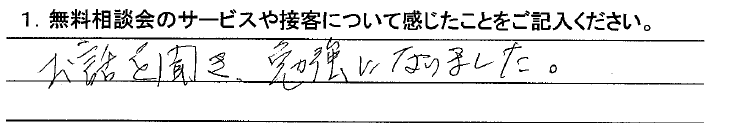 1. 無料相談会のサービスや接客について感じたことをご記入ください。
お話を聞き、勉強になりました。